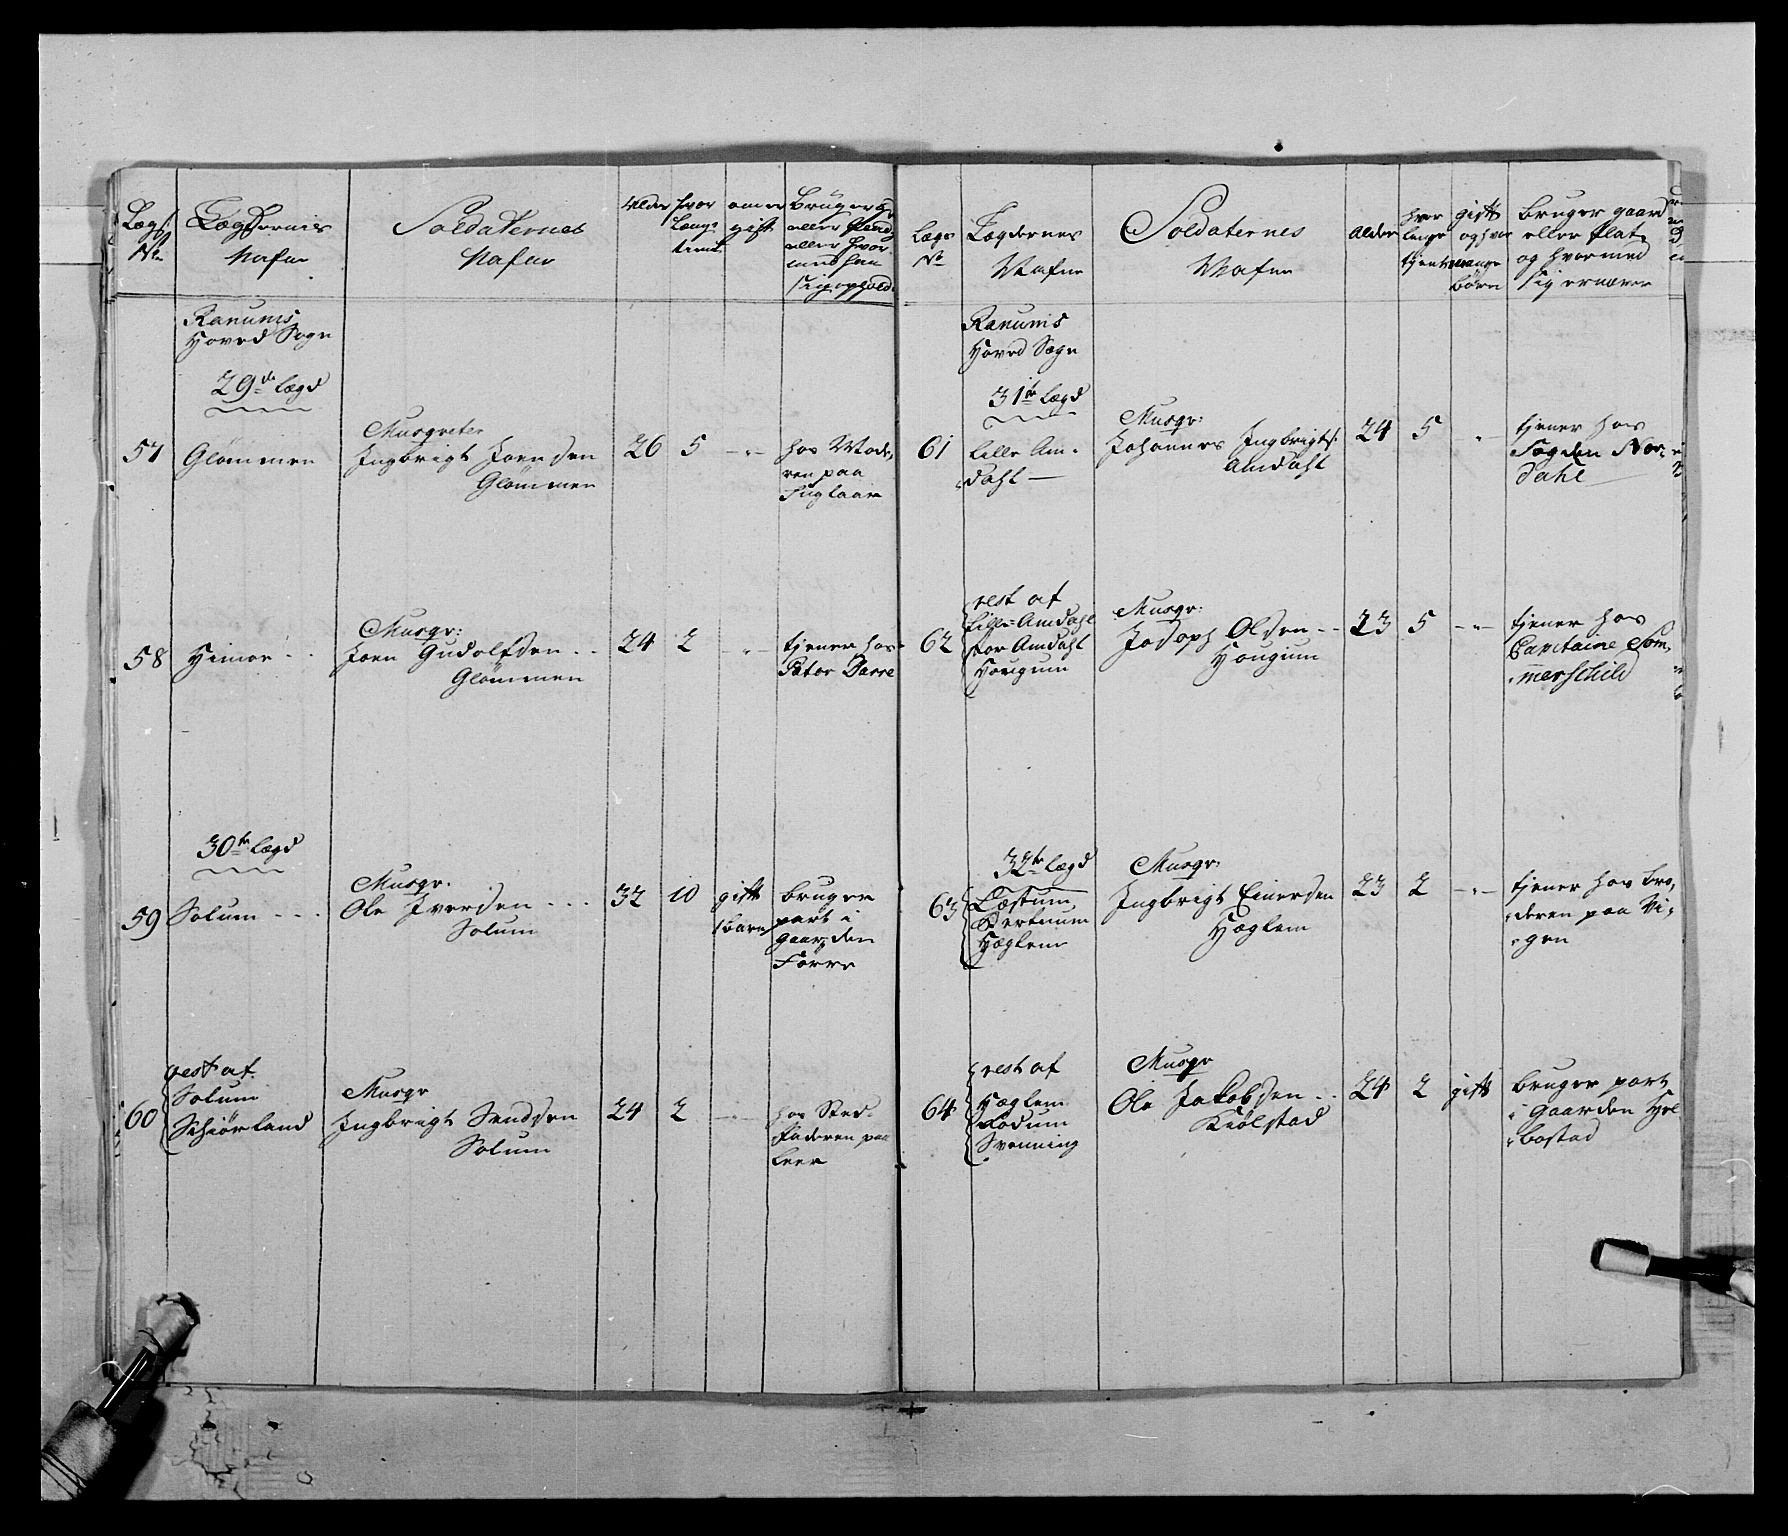 Lægs No
Lægdernis Nafne
Soldaternes Nafne
Alder
hvor længe tient
om er gift
bruger gr eller Plads eller hvor med han sig ophold.
Ranums
Hoved Sogn
29de lægd
57
Glømmen
Musqveter
Ingbrigt Joensen
Glømmen
26
5
hos Mode,
ren paa
Fuglaar
58
Himoe
Musqr:
Joen Gudolfsen
Glømmen
24
2
tjener hos
Peter Darre
30te lægd
59
Solum
Musqr.
Ole Iversen
Solum
32
10
gift
1 barn
bruger
part i
Gaarden
Førre
60
rest af
Solum
Schiørland
Musqr
Ingbrigt Sendsen
Solum
24
2
hos Sted-
faderen paa
Leer
Lægs No
Lægdernes
Nafne
Soldaternes
Nafne
Alder
hvor
længe
tjent
gift
og hvor
mange
børn
bruger gaard
eller Plat,
og hvormed
sig ernærer
Ranums
Hoved Sogn
31te lægd
61
Lille Am-
dahl
Musqr:
Johannes Ingbrigts:
Amdahl
24
5
tjener hos
Fogden Nor-
dahl
62
rest af
Lille Amdahl
stor Amdahl
Hougum
Musqr:
Joseph Olsen
Hougum
23
5
tjener hos
Capitaine Som-
merschild
32te lægd
63
Læstum
Bertnum
Hæglem
Musqr:
Ingbrigt Einersen
Hæglem
23
2
tjener hos bro,
deren paa Vi-
gen
64
rest af
Hæglem
Rodum
Svenning
Musqr
Ole Jakobsen
Kiølstad
24
2
gift
bruger part
i Gaarden Hyl
bostad